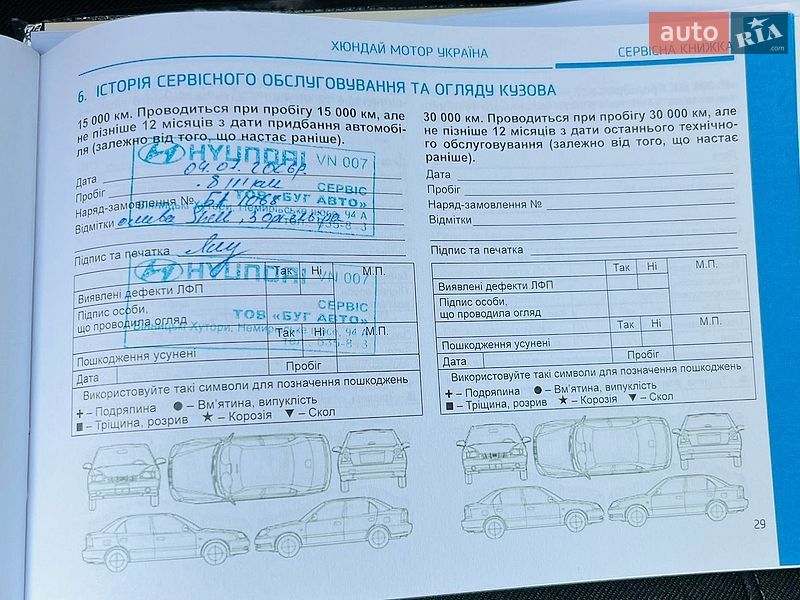 auto RIA .com
ХЮНДАЙ МОТОР УКРАЇНА
СЕРВІСНА КНИЖКА
6. ІСТОРІЯ СЕРВІСНОГО ОБСЛУГОВУВАННЯ ТА ОГЛЯДУ КУЗОВА
15 000 км. Проводиться при пробігу 15 000 км, але
не пізніше 12 місяців з дати придбання автомобі-
ля (залежно від того, що настає раніше).
HYUNDAI VN 007
Дата
Пробіг 8111 км
СЕРВІС
ТОВ «БУГ АВТО»
Наряд-замовлення №
Відмітки олива Shell
Підпис та печатка
HYUNDAI VN 007
Так Ні М.П.
Виявлені дефекти ЛФП
СЕРВІС
Підпис особи,
що проводила огляд
ТОВ «БУГ АВТО»
Так Ні М.П.
Пошкодження усунені
Дата Пробіг
Використовуйте такі символи для позначення пошкоджень
+ – Подряпина ● – Вм’ятина, випуклість
■ – Тріщина, розрив ★ – Корозія ▼ – Скол
30 000 км. Проводиться при пробігу 30 000 км, але
не пізніше 12 місяців з дати останнього технічно-
го обслуговування (залежно від того, що настає
раніше).
Дата
Пробіг
Наряд-замовлення №
Відмітки
Підпис та печатка
Так Ні М.П.
Виявлені дефекти ЛФП
Підпис особи,
що проводила огляд
Так Ні М.П.
Пошкодження усунені
Дата Пробіг
Використовуйте такі символи для позначення пошкоджень
+ – Подряпина ● – Вм’ятина, випуклість
■ – Тріщина, розрив ★ – Корозія ▼ – Скол
29